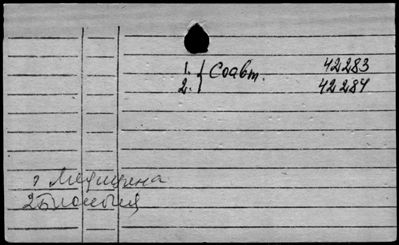 1. } Соавт. 42283
2. } 42284
1 Медицина
2 Биология